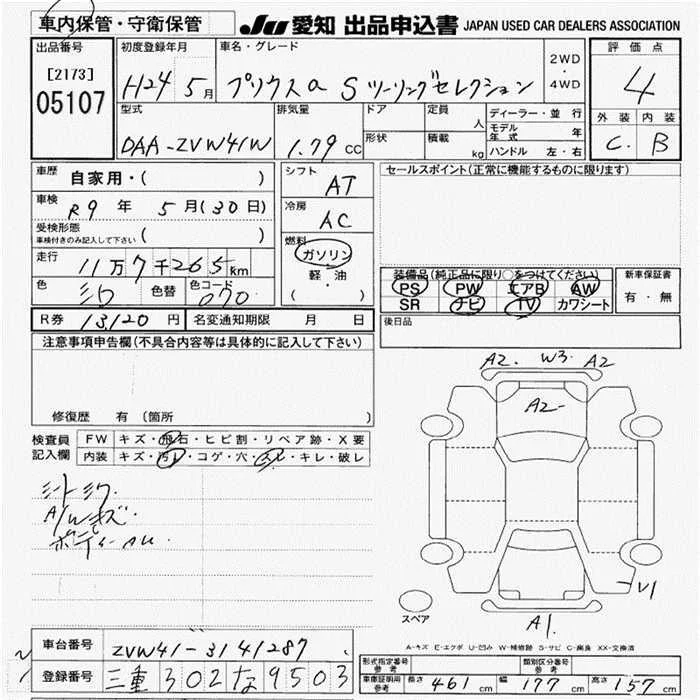 車内保管・守衛保管
JU 愛知 出品申込書 JAPAN USED CAR DEALERS ASSOCIATION
出品番号
[2173]
05107
初度登録年月
H24 5月
車名・グレード
プリウスα Sツーリングセレクション
2WD
・
4WD
評価点
4
外装 内装
C B
型式
DAA-ZVW41W
排気量
1.79 CC
ドア
形状
定員
人
積載
kg
ディーラー・並行
モデル年式 年
ハンドル 左・右
車歴 自家用・( )
車検 R9年 5月(30日)
受検形態
車検付きのみ記入して下さい ( )
走行 11万7千265km
色 シロ 色替 色コード 070
シフト
AT
冷房
AC
燃料
ガソリン
軽・油
( )
セールスポイント(正常に機能するものに限ります)
装備品(純正品に限り○をつけてください)
PS PW エアB AW
SR ナビ TV カワシート
新車保証書
有・無
後日品
R券 13,120円 名変通知期限 月 日
注意事項申告欄(不具合内容等は具体的に記入して下さい)
修復歴 有 (箇所 )
検査員
記入欄
FW キズ・飛石・ヒビ割・リペア跡・X要
内装 キズ・汚れ・コゲ・穴・スレ・キレ・破レ
シートシワ.
A/Wキズ.
ボディーAU.
A2. W3 A2
A2-
V1
A1.
スペア
A-キズ E-エクボ U-凹み W-補修跡 S-サビ C-腐食 XX-交換済
車台番号 ZVW41-3141287
登録番号 三重302な9503
形式指定番号
参考
類別区分番号
参考
車庫証明用
参考
長さ 461 cm 幅 177 cm 高さ 157 cm